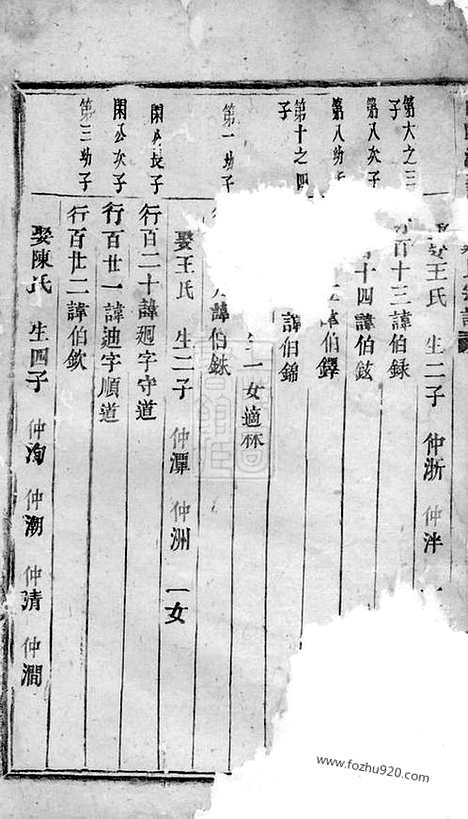 娶王氏 生二子 仲浙 仲泮
第六之三子
百十三諱伯銶
第八次子
十四諱伯鉉
第八幼子
諱伯鐸
第十之四子
諱伯錦
一女適林
第一幼子
諱伯銖
娶王氏 生二子 仲潭 仲洲 一女
閑公長子
行百二十諱迥字守道
閑公次子
行百廿一諱迪字順道
第三幼子
行百廿二諱伯欽
娶陳氏 生四子 仲洵 仲潮 仲清 仲澗
www.fozhu920.com